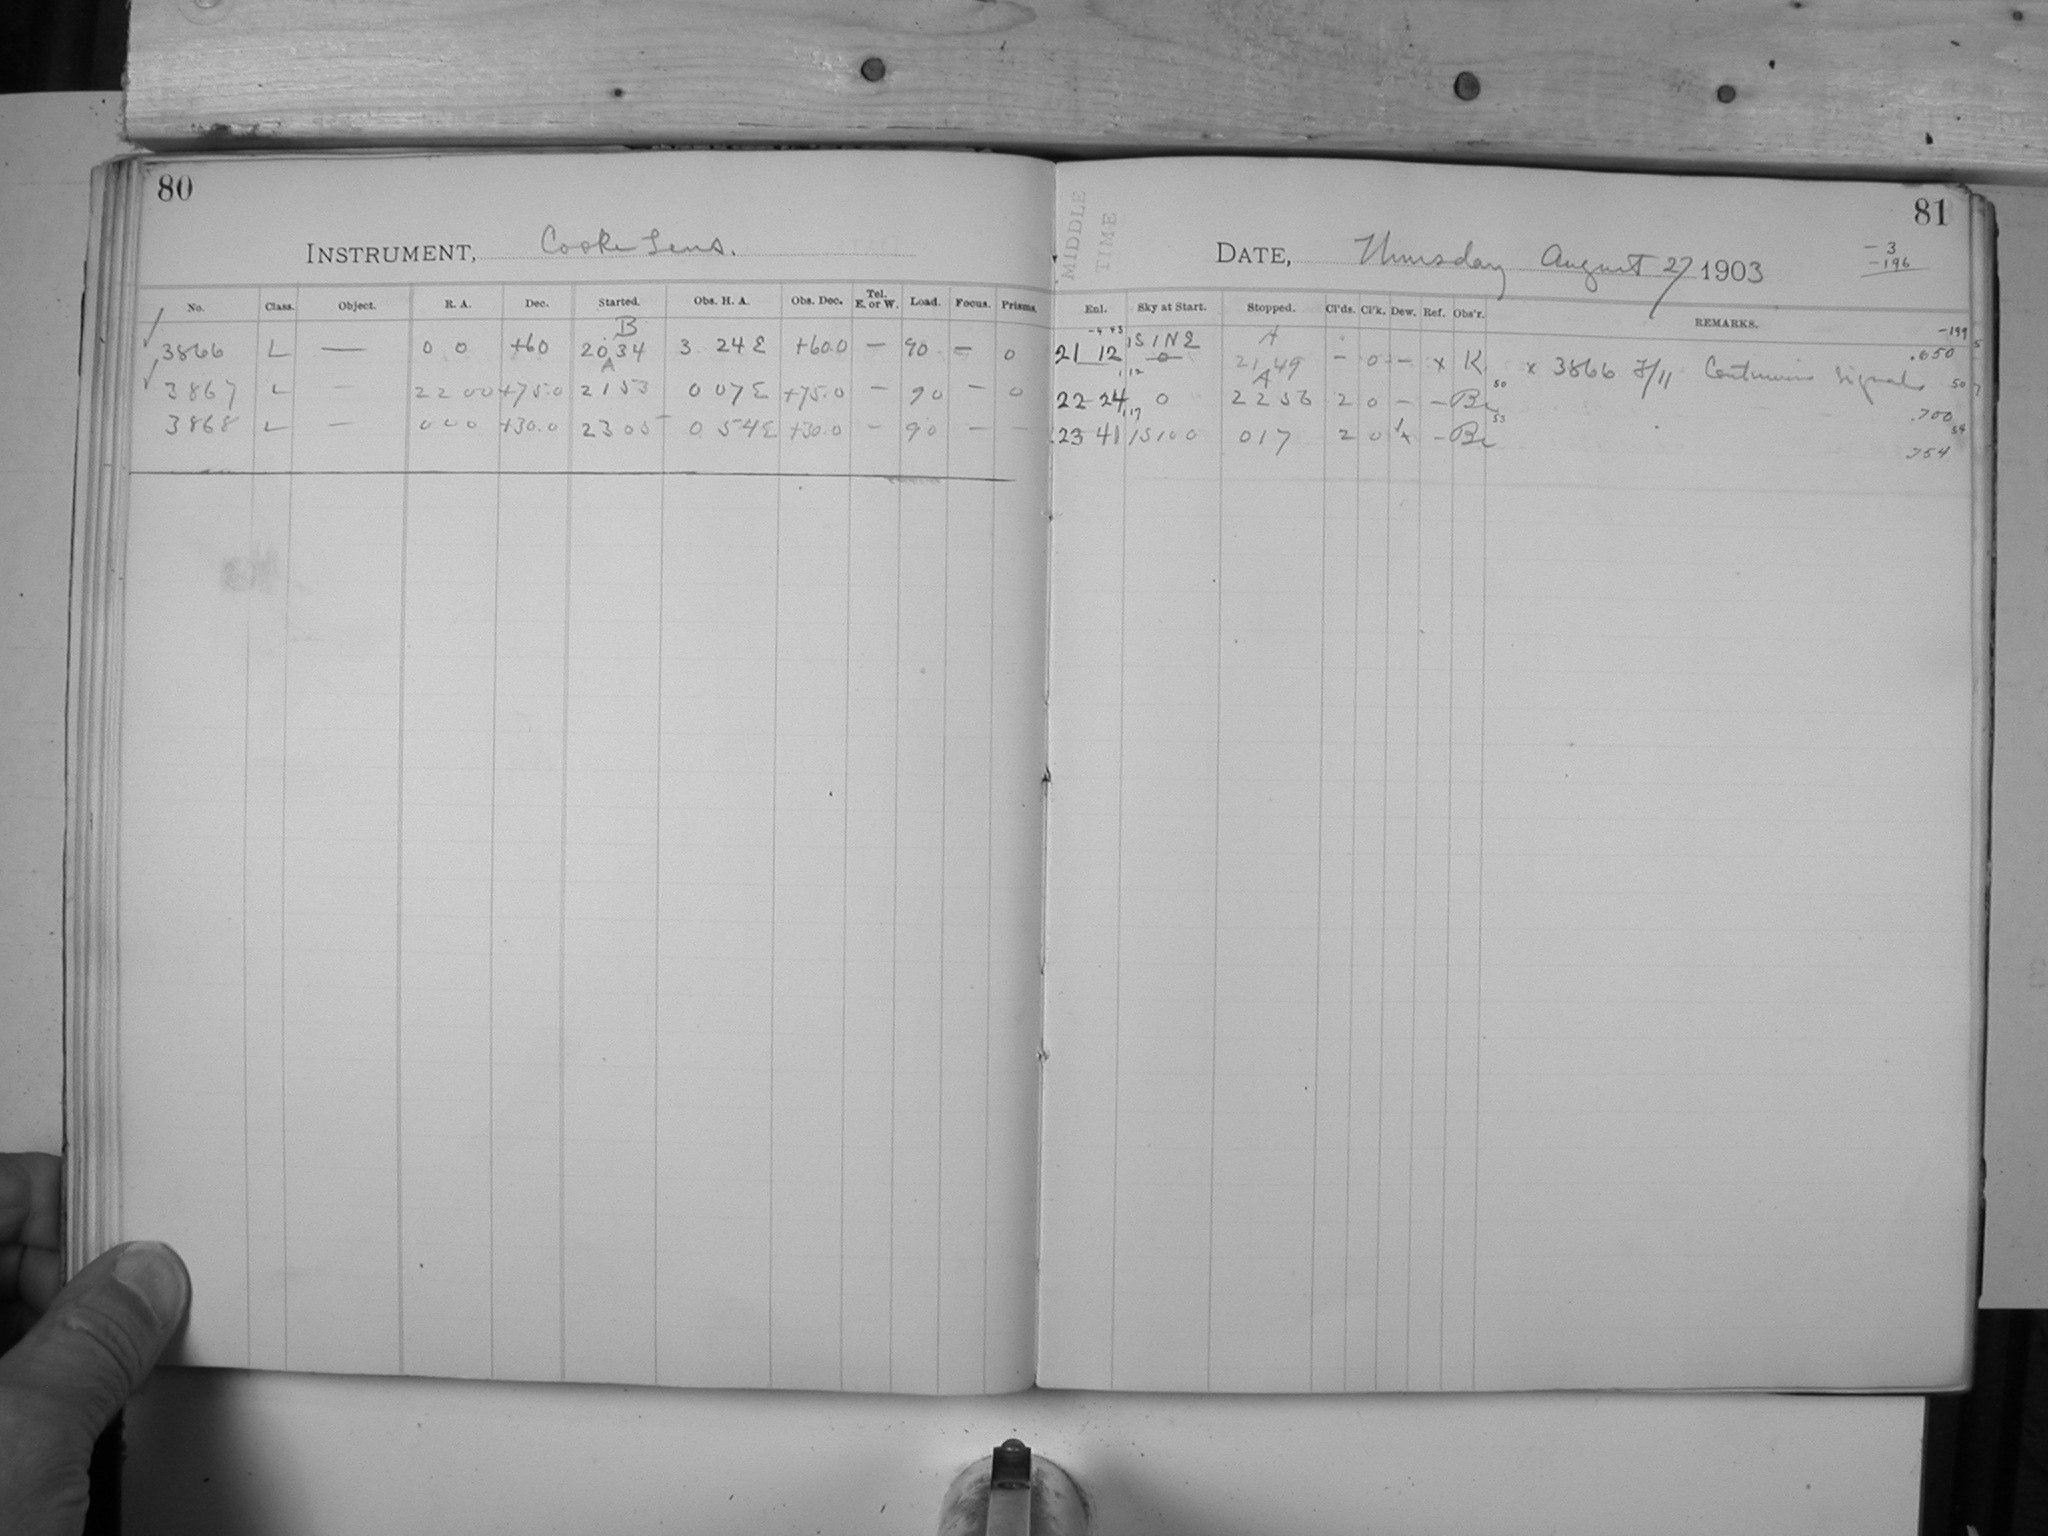 80
INSTRUMENT, Cooke Lens.
No. Class. Object. R. A. Dec. Started. Obs. H. A. Obs. Dec. Tel. E. or W. Load. Focus. Prisms.
B
3866 L — 0 0 +60 20 34 3 24 E +60.0 — 90 — 0
A
3867 L — 22 00 +75.0 21 53 0 07 E +75.0 — 90 — 0
3868 L — 0 0 0 +30.0 23 05 0 54 E +30.0 — 90 — —
81
MIDDLE
TIME
DATE, Thursday August 27 1903
-3
-196
Enl. Sky at Start. Stopped. Cl'ds. Cl'k. Dew. Ref. Obs'r. REMARKS.
-199
1S 1NE A .650
21 12 0 21 49 — 0 — x K. x 3866 Continuous Signals
1,12 A 50 50
22 24 0 22 56 2 0 — — Be .700
1,17 55 54
23 41 1S100 0 17 2 0 — Be .754